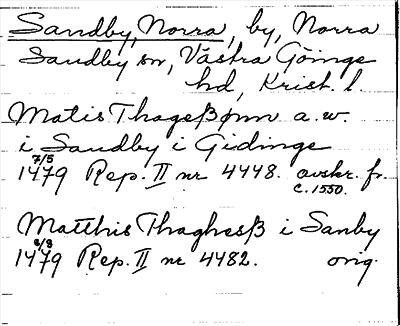 Sandby, Norra, by, Norra
Sandby sn, Västra Göinge
hd, Krist. l.
Matis Thageßønn a.w.
i Sandby i Gidinge
7/5
1479 Rep. II nr 4448. avskr. fr.
c. 1550.
Matthis Thagheß i Sanby
6/8
1479 Rep. II nr 4482. orig.